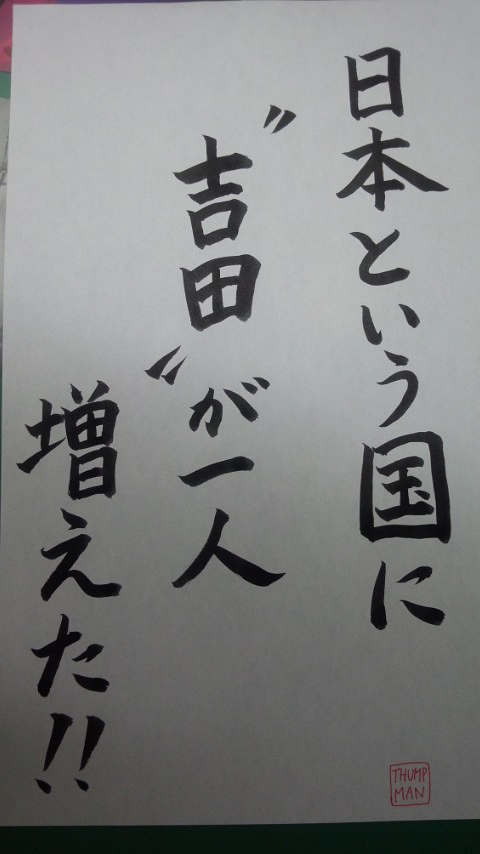 日本という国に
〝吉田〟が一人
増えた!!
THUMP
MAN